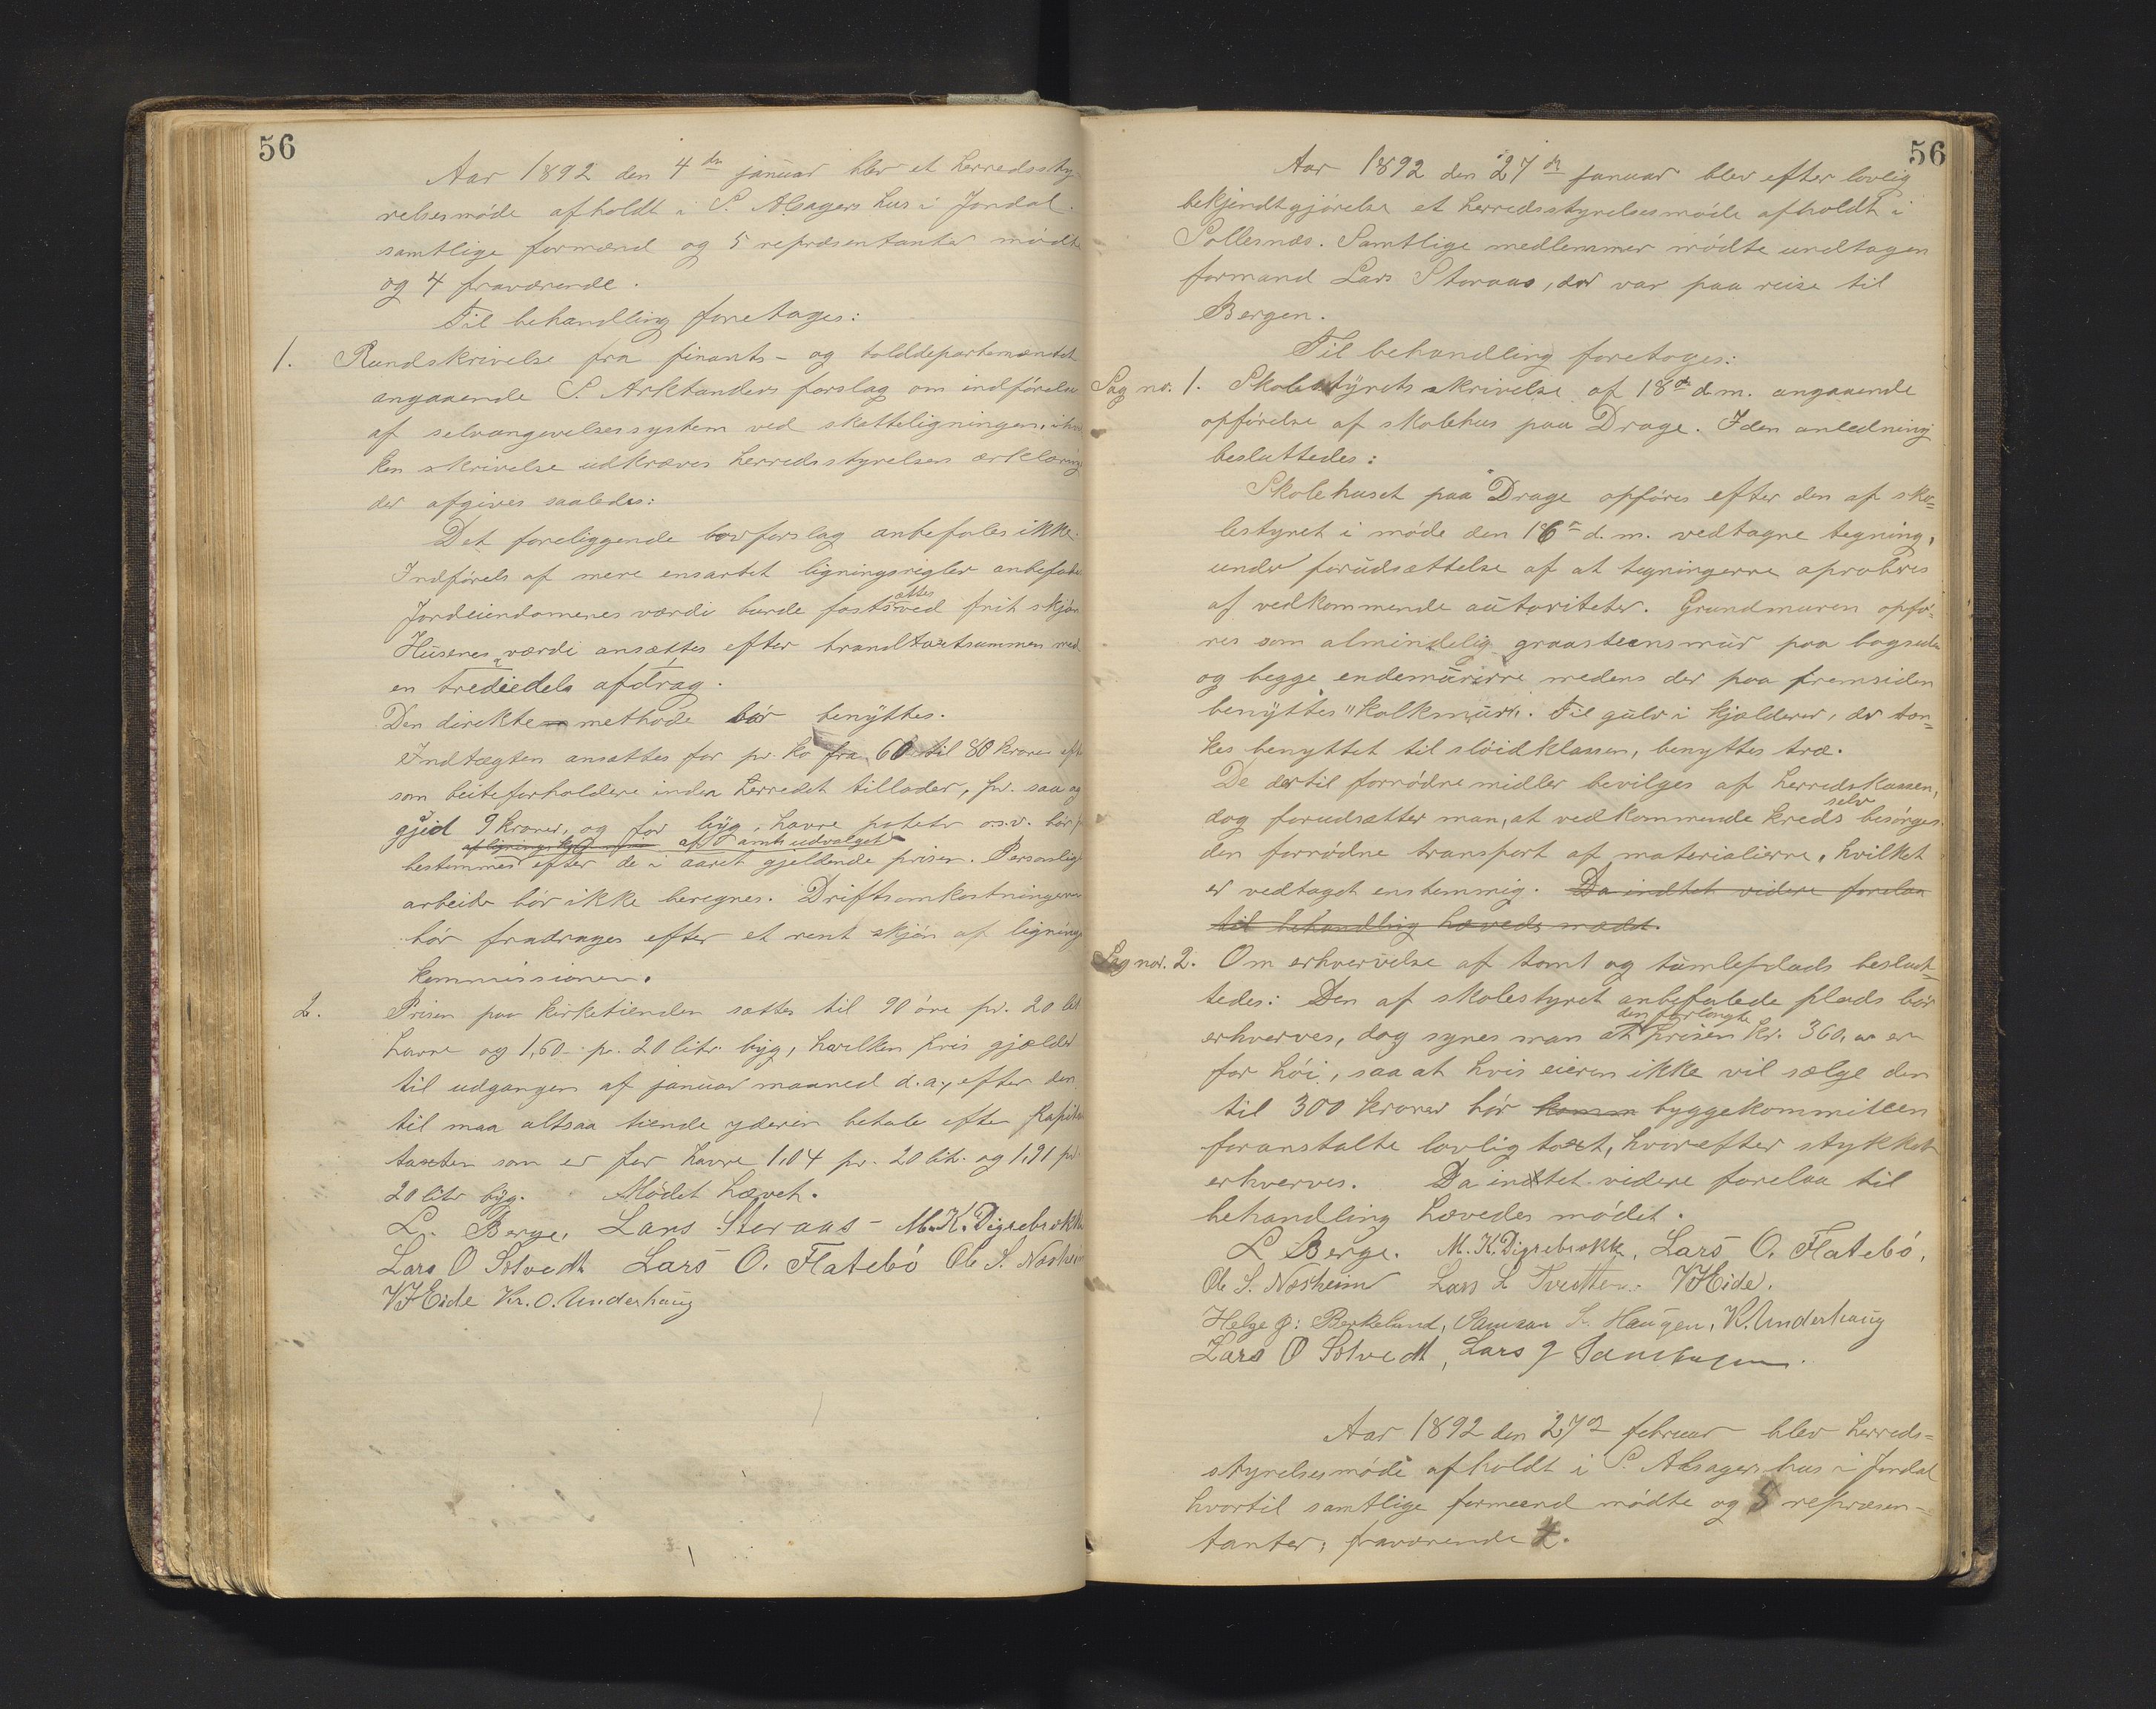 56
Aar 1892 den 4de januar blev et herredssty-
relsesmöde afholdt i S. Alsagers hus i Jondal.
samtlige formænd og 5 repræsentanter mödte
og 4 fraværende.
Til behandling foretages:
1. Rundskrivelse fra finants- og tolddepartementet
angaaende S. Arktanders forslag om indförelse
af selvangivelsessystem ved skatteligningen, i hvil
ken skrivelse udkræves herredsstyrelsens ærklæring
der afgives saaledes:
Det foreliggende lovforslag anbefales ikke.
Indförels af mere ensartet ligningsrigler anbefales
Jordeiendomenes værdi burde fastsættes ved frit skjön
Husenes værdi ansættes efter brandtaxtsummen med
en trediedels afdrag.
Den direkte methode bör benyttes.
Indtægten ansættes for pr. ko fra 60 til 80 kroner efter
som beiteforholdene inden herredet tillader, pr. sau og
gjeid 9 kroner, og for byg, havre poteter o.s.v. bör
af amtsudvalget
bestemmes efter de i aaret gjeldende priser. Personligt
arbeide bör ikke beregnes. Driftsomkostningerne
bör fradrages efter et rent skjön af lignings
kommissionen.
2. Prisen paa kirketienden sættes til 90 öre pr. 20 lit
havre og 1,60 pr. 20 litr. byg, hvilken pris gjælder
til udgangen af januar maaned d.a., efter den
til maa altsaa tiende yderen betale efter kapitel
taxten som er for havre 1,04 pr. 20 litr. og 1,91 pr.
20 litr byg. Mödet hævet.
L. Berge, Lars Steraas - M. K. Digrebrokke
Lars O Solvedt Lars O. Flatebö Ole S. Næsheim
VJEide Kr. O. Underhaug
56
Aar 1892 den 27de januar blev efter lovlig
bekjendtgjörelse et herredsstyrelsesmöde afholdt i
Sollesnæs. Samtlige medlemmer mödte undtagen
formand Lars Storaas, der var paa reise til
Bergen.
Til behandling foretages:
Sag no. 1. Skolestyrets skrivelse af 18de d.m. angaaende
opförelse af skolehus paa Drage. I den anledning
besluttedes:
Skolehuset paa Drage opföres efter den af sko-
lestyret i möde den 16de d.m. vedtagne tegning,
under forudsættelse af at tegningerne aproberes
af vedkommende autoriteter. Grundmuren opfö-
res som almindelig graasteensmur paa bagsiden
og begge endemurirne medens der paa fremsiden
benyttes "kalkmur". Til gulv i kjælderen, der tæn-
kes benyttet til slöidklassen, benyttes træ.
De dertil fornödne midler bevilges af herredskassen,
dog forudsætter man, at vedkommende kreds selv besörger
den fornödne transport af materialierne, hvilket
er vedtaget enstemmig. Da indtet videre forelaa
til behandling hævedes mödet.
Sag no. 2. Om erhvervelse af tomt og tumleplads beslut-
tedes: Den af skolestyret anbefalede plads bör
erhverves, dog synes man at den forlangte prisen kr. 360,00 er
for höi, saa at hvis eieren ikke vil sælge den
til 300 kroner bör komm byggekommiteen
foranstalte lovlig taxt, hvorefter stykket
erhverves. Da indtet videre forelaa til
behandling hævedes mödet.
L Berge. M. K. Digrebrokke, Lars O. Flatebö,
Ole S. Næsheim Lars L Tveitten. VJEide.
Helge J: Berkeland, Samson S. Haugen, K. Underhaug
Lars O Solvedt, Lars J
Aar 1892 den 27de februar blev herreds-
styrelsesmöde afholdt i S. Alsagers hus i Jondal
hvortil samtlige formænd mödte og 5 repræsen-
tanter, fraværende 4.